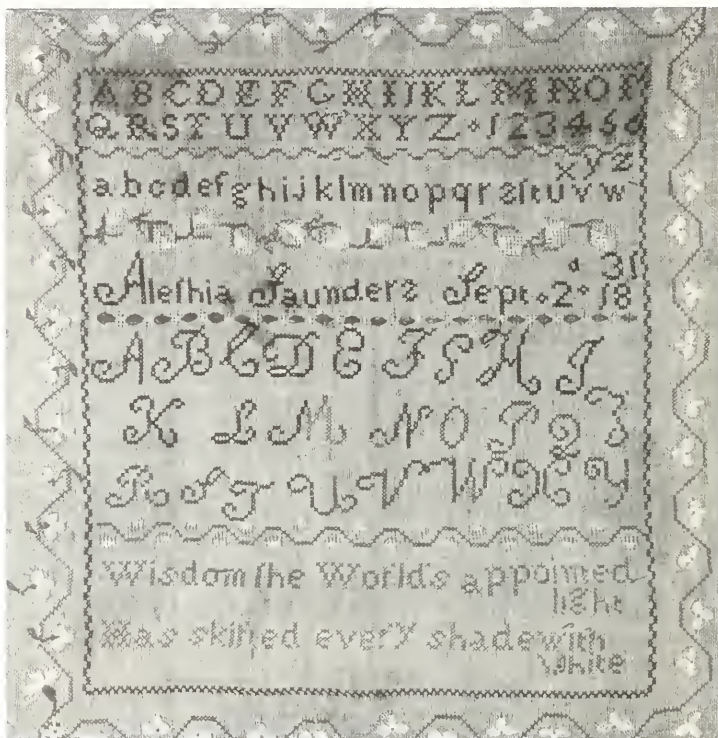 A B C D E F G H I J K L M N O P
Q R S T U V W X Y Z 1 2 3 4 5 6
a b c d e f g h i j k l m n o p q r s ſ t u v w x y z
Alethia Saunders Sept. 2d 1831
A B C D E F G H I
K L M N O P Q
R S T U V W X Y Z
Wisdom the World's appointed
light
Has every shade with
White